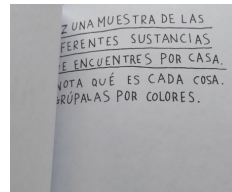 Z UNA MUESTRA DE LAS
FERENTES SUSTANCIAS
E ENCUENTRES POR CASA.
NOTA QUÉ ES CADA COSA.
RÚPALAS POR COLORES.